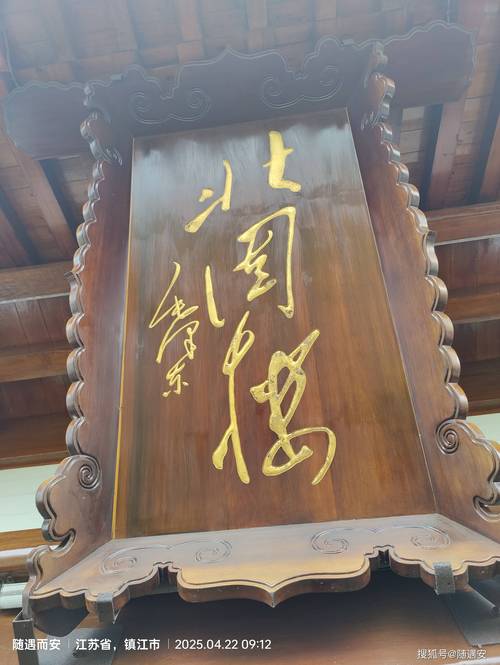 北固楼
毛泽东
随遇而安 | 江苏省，镇江市 | 2025.04.22 09:12
搜狐号@随遇安